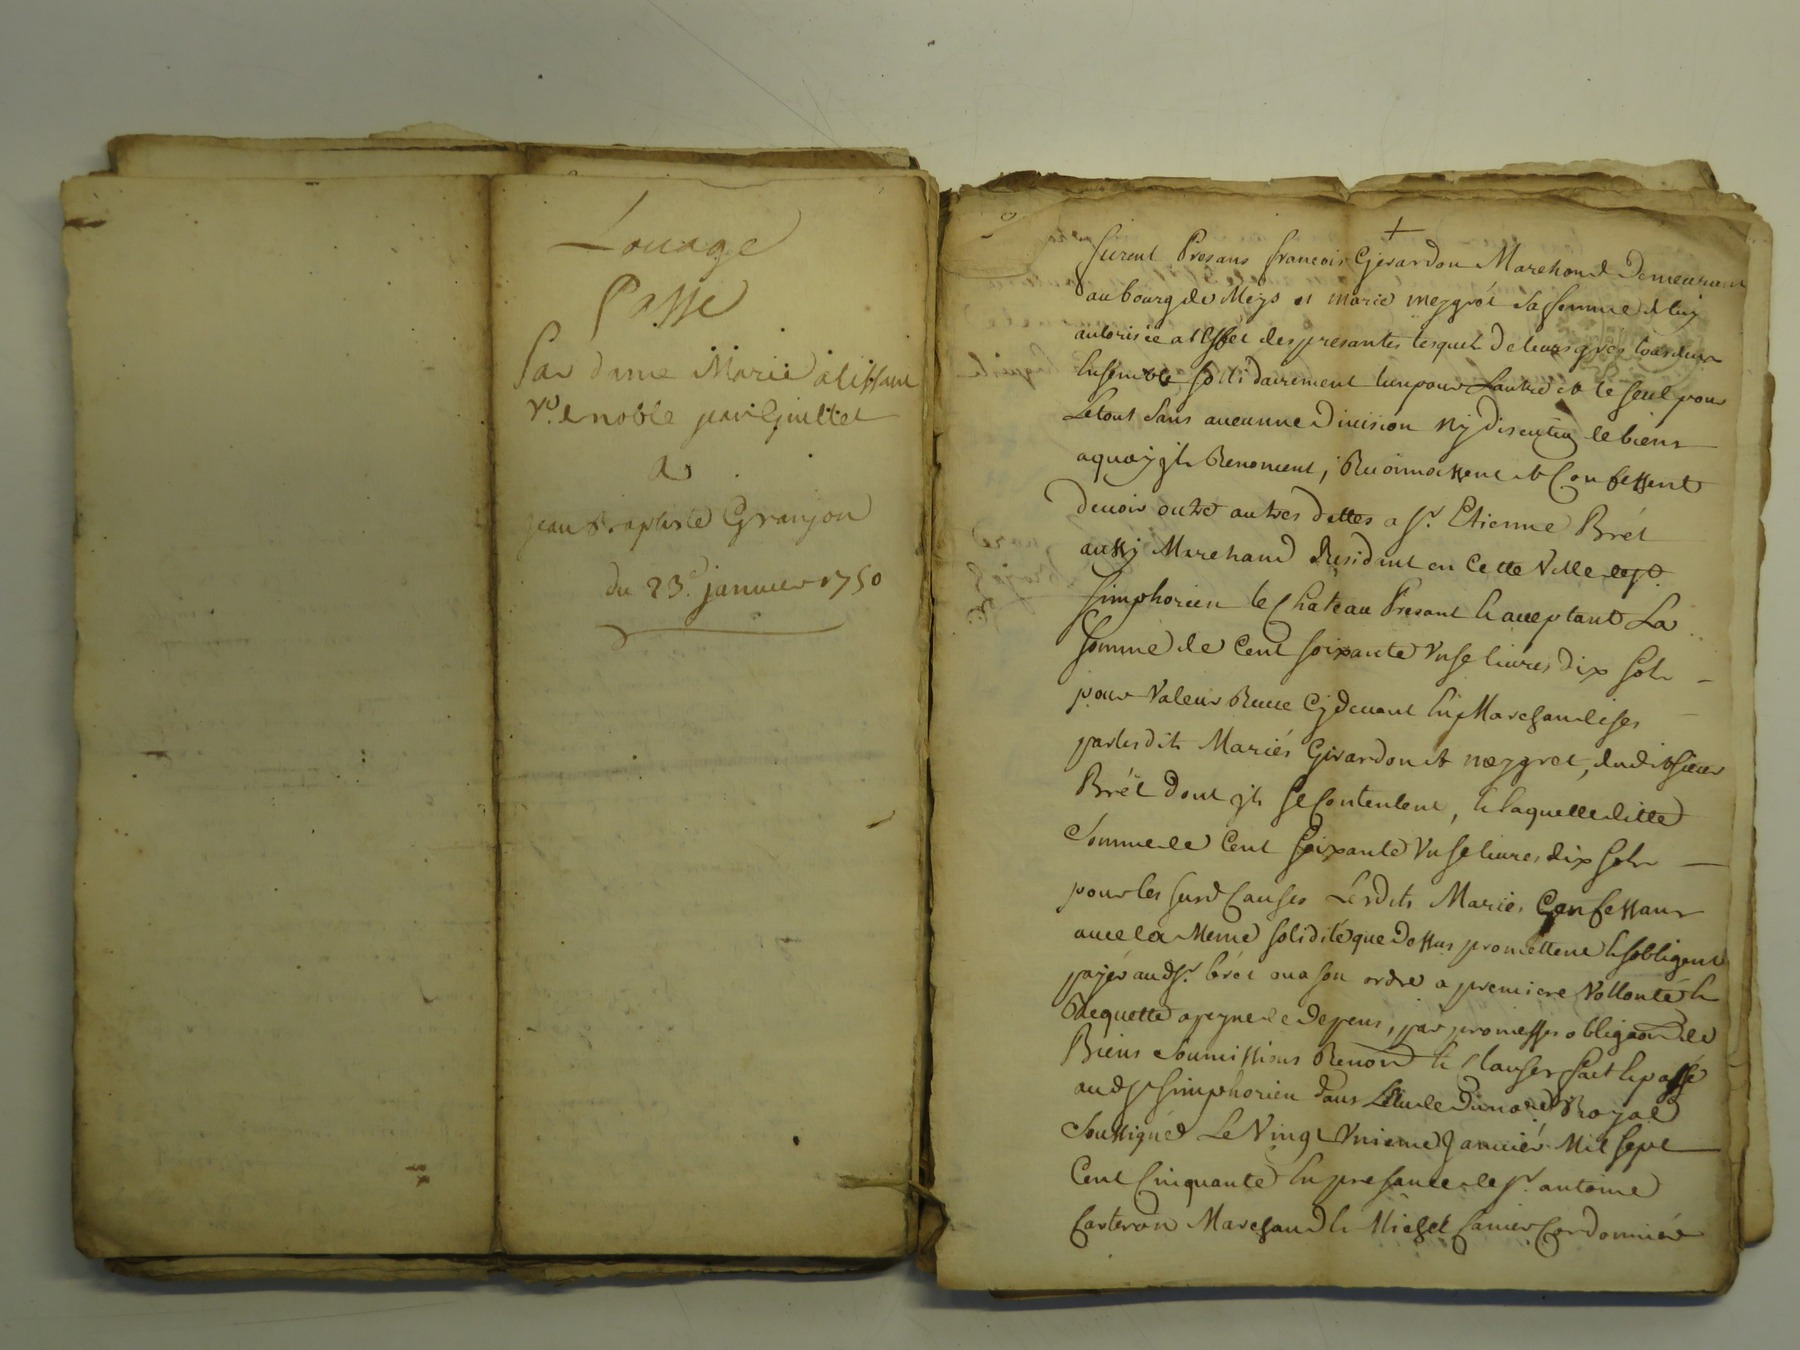 Louage
Passé
Par dame Marie alissant
Ve. de noble jean Guillet
a
jean Baptiste Granjon
du 23e. janvier 1750
furent Presans francois Girardon Marchand Demeurant
au bourg de Meys et marie meygrét sa femme de luy
autorisée a l'Effet des presantes lesquels de leurs grés tous deux
Ensemble solidairement lun pour Lautre et le seul pour
Le tout sans aucunne Division ny discution de biens
a quoy yls Renoncent, Reconnoissent et Confessent
devoir outre autres dettes a sr. Etienne Brét
aussy Marchand Residant en Cette Ville de st.
simphorien le Chateau Presant & acceptant La
somme de Cent soixante Unse livres dix sols
pour Valeur Reçue Cy devant En Marchandises
par lesdits Mariés Girardon et meygret, dudit sieur
Brét dont yls se Contentent, & laquelle ditte
somme de Cent soixante Unse livres dix sols
pour les susd Causes Lesdits Mariés Confessans
avec la Meme solidité que Dessus promettent & sobligent
payer audsr. brét ou a son ordre a premiere Vollonté &
Requette a peyne de Depens, par promesses obligaon de
Biens soumissions Renonõn & Clauses fait & passé
aud st simphorien dans Letude du no.re Royal
soussigné Le Vingt Unieme Janvier Mil sept
Cent Cinquante En presance de sr. antoine
Carteron Marchand & Michel Canier Cordonnier